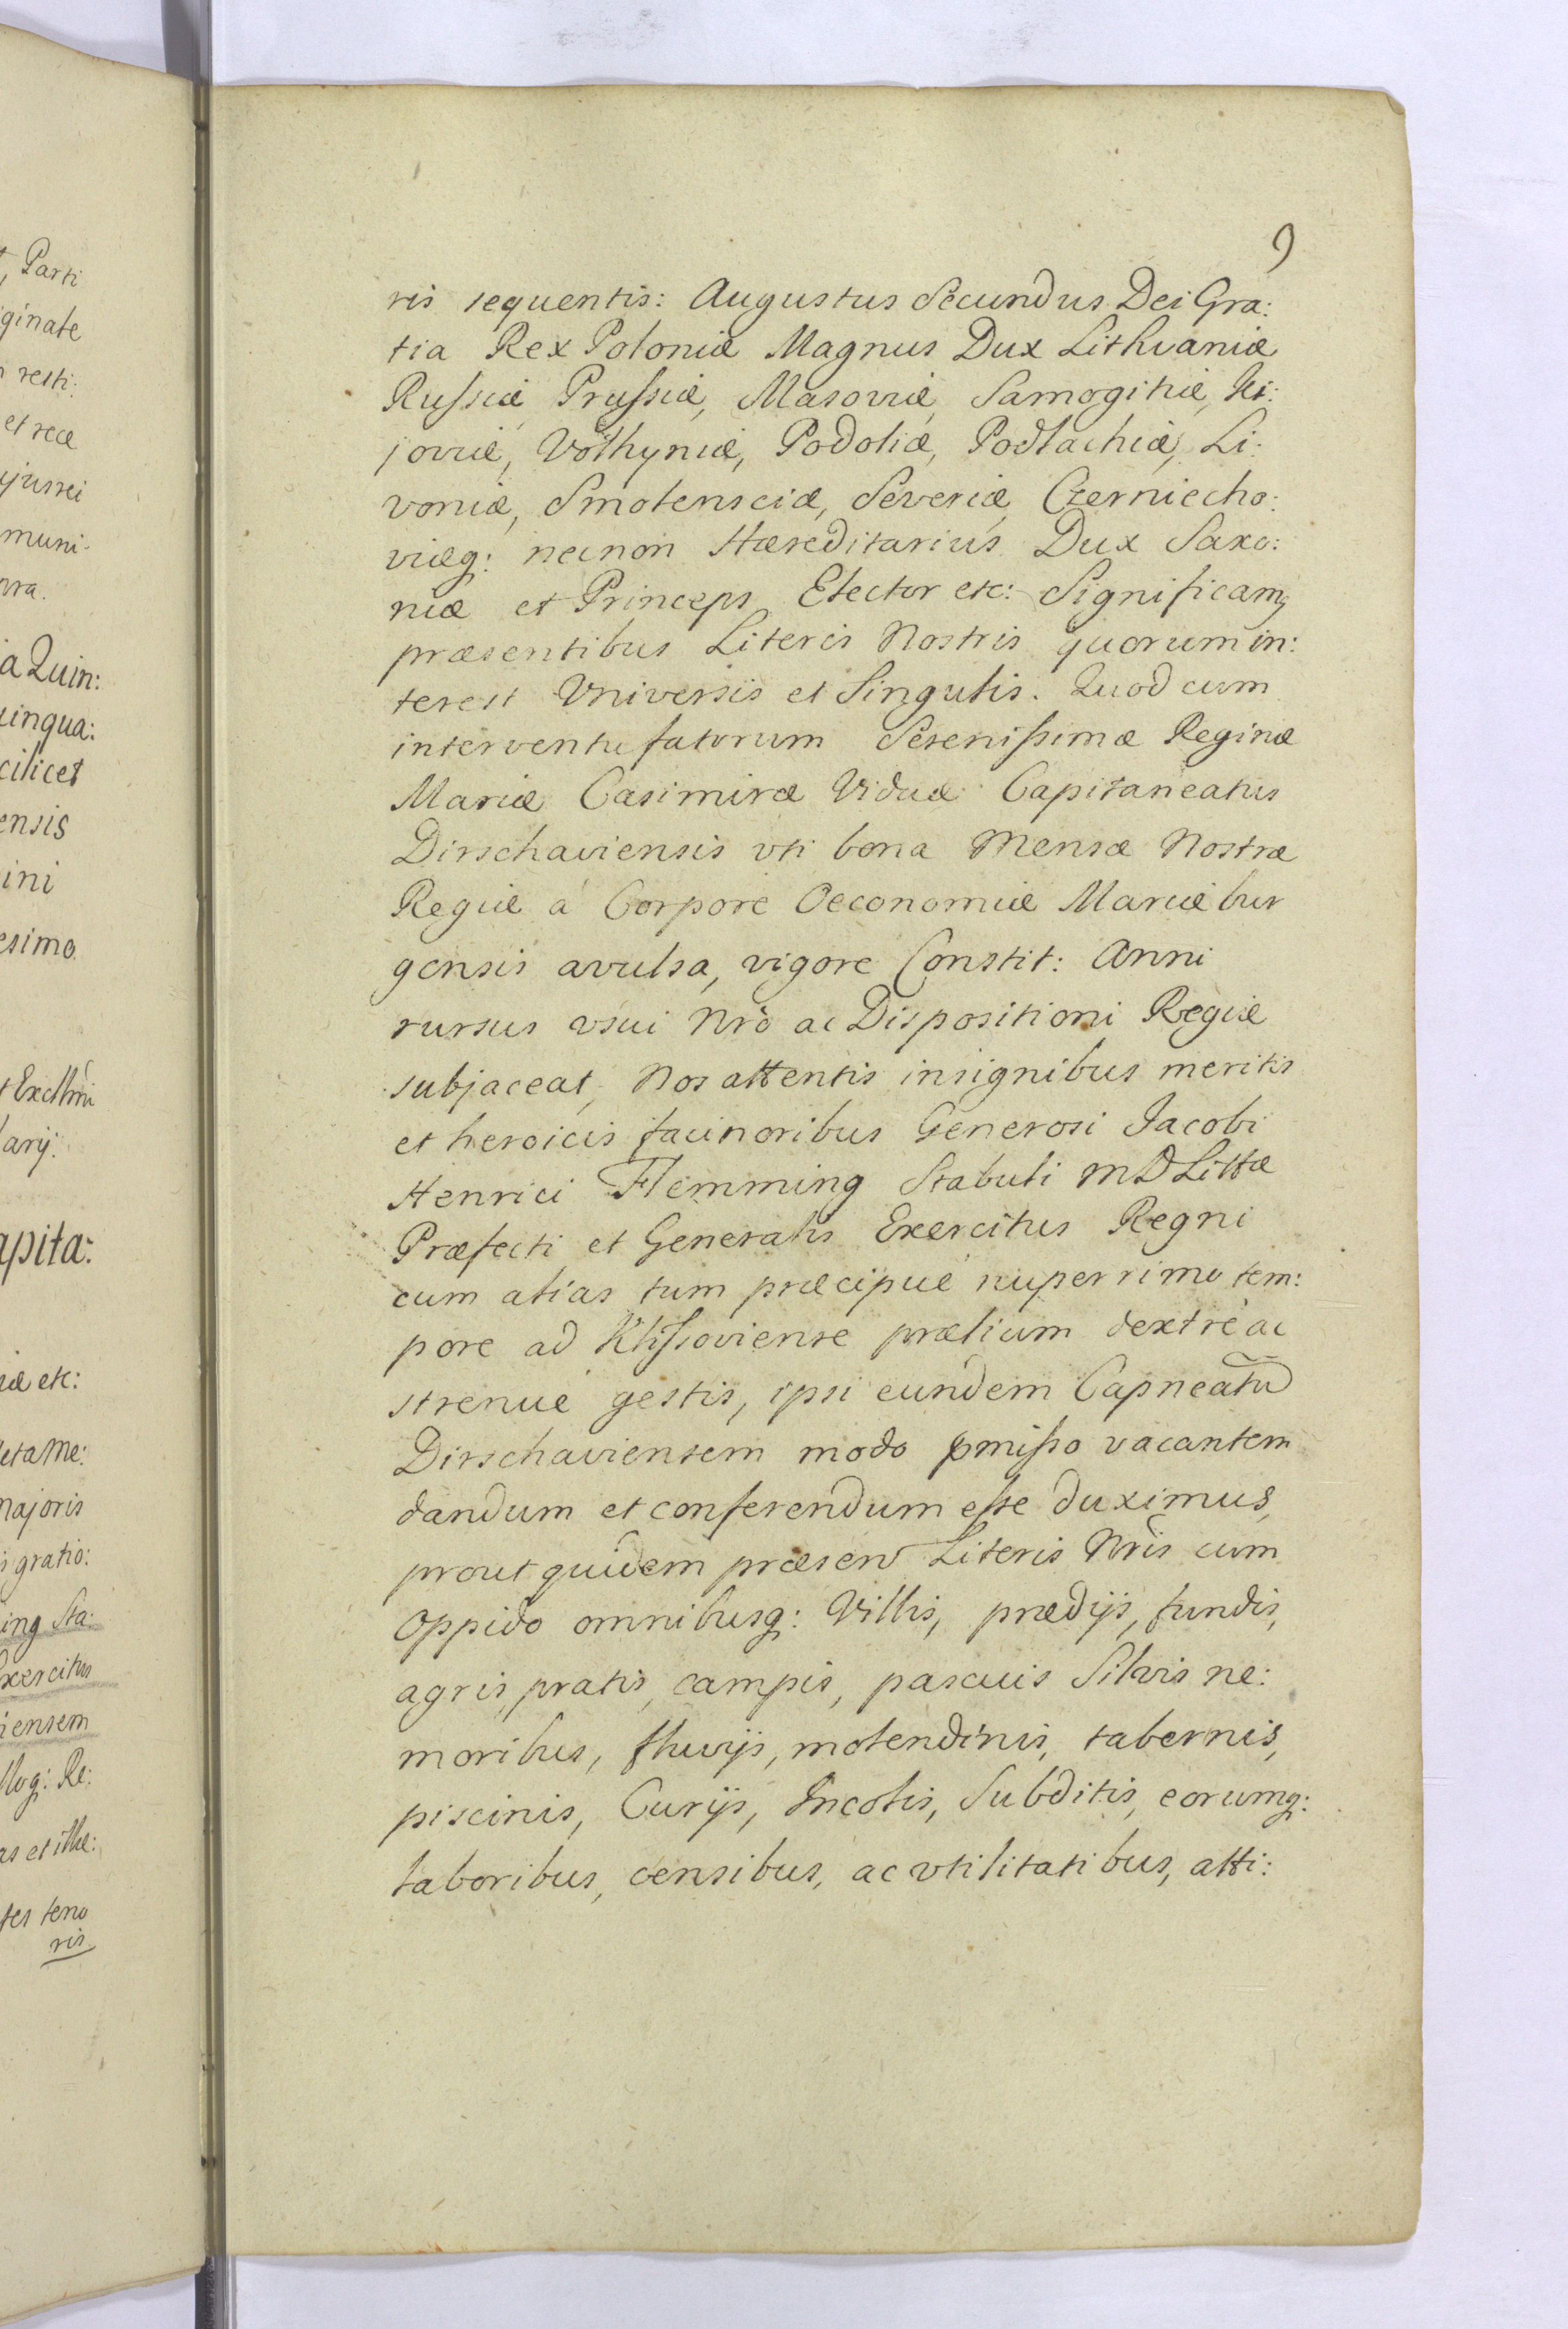 , Parti
ginate
resti:
et rece
jusrei
muni-
a Quin:
uinqua:
cilicet
ensis
ini
esimo
Excllmi
arij:
apita:
iæ etc:
eta Me:
majoris
gratio:
ing Sta:
Exercitus
iensem
as et ille:
tes teno
ris
9
ris sequentis: Augustus Secundus Dei Gra:
tia Rex Poloniæ Magnus Dux Lithvaniæ
Russiæ Prussiæ, Masoviæ, Samogitiæ, Ki:
joviæ, Volhyniæ, Podoliæ, Podlachiæ, Li:
voniæ, Smolensciæ, Severiæ, Czerniecho:
viæq: necnon Hæreditarius Dux Saxo:
niæ et Princeps Elector etc: Significamq
præsentibus Literis Nostris quorum in:
terest Vniversis et Singulis. Quod cum
interventu fatorum Serenissimæ Reginæ
Mariæ Casimiræ Viduæ Capitaneatus
Dirschaviensis vti bona Mensæ Nostræ
Regiæ à Corpore Oeconomiæ Mariæbur
gensis avulsa, vigore Constit: Anni
rursus vsui Nrõ ac Dispositioni Regiæ
subjaceat, Nos attentis insignibus meritis
et heroicis facinoribus Generosi Jacobi
Henrici Flemming Stabuli MD Littæ
Præfecti et Generalis Exercitus Regni
cum alias tum præcipuè nuperrimo tem:
pore ad Klissoviense prælium dextrè ac
strenuè gestis, ipsi eundem Capneatũ
Dirschaviensem modo pmisso vacantem
dandum et conferendum esse duximus,
prout quidem præsen Literis Nrĩs cum
Oppido omnibusq: Villis, prædijs, fundis,
agris, pratis, campis, pascuis Silvis ne:
moribus, fluvijs, molendinis, tabernis,
piscinis, Curijs, Incolis, Subditis, eorumq:
laboribus, censibus, ac vtilitatibus, atti: